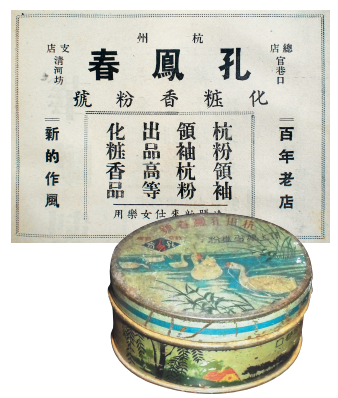 杭州
孔鳳春
化粧香粉號
總店
官巷口
支店
清河坊
百年老店
杭粉領袖
領袖杭粉
出品高等
化粧香品
仕女樂用
新的作風